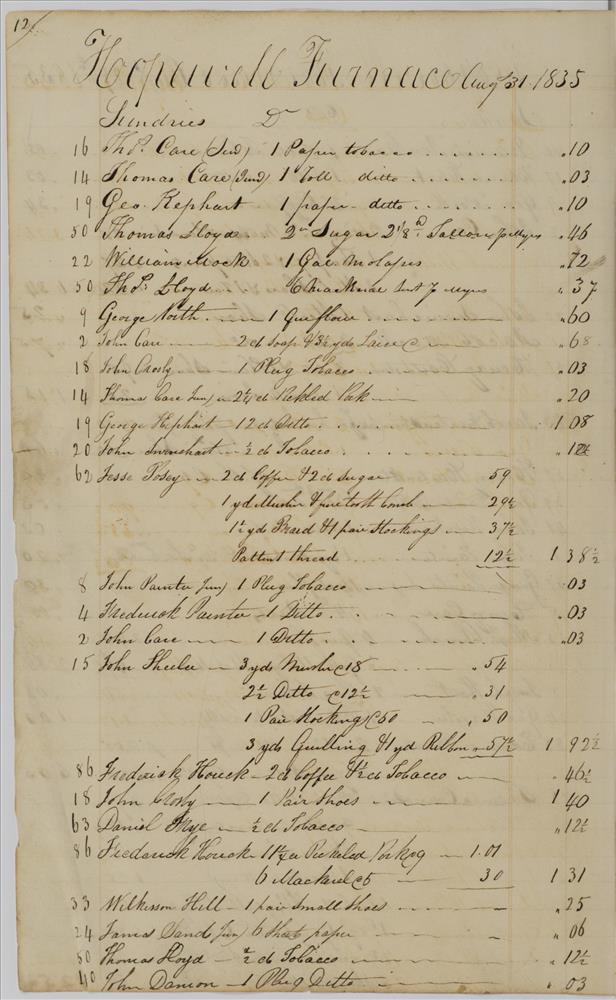 12
Hopewell Furnace Augt 31. 1835
Sundries Dr
16 Thos. Care (Sen) 1 Paper tobacco .10
14 Thomas Care (Jun) 1 Roll ditto .03
19 Geo. Kephart 1 paper ditto .10
50 Thomas Lloyd 2 Sugar 2 1/8 Tallow .46
22 William Mock 1 Gal Molases .72
50 Thos. Lloyd 6 Mackrel .37
9 George North 1 Qr flour .60
2 John Care 2 lb Soap & 3½ yds Laice .68
18 John Crosby 1 Plug Tobacco .03
14 Thomas Care Jun) 2½ lb Pickled Pork .20
19 George Kephart 12 lb Ditto 1 08
20 John Swinehart ½ lb Tobacco .12½
62 Jesse Posey 2 lb Coffee & 2 lb Sugar 59
1 yd Muslin & fine tooth Comb 29½
1½ yds Braid & 1 pair Stockings 37½
Pattent thread 12½ 1 38½
8 John Painter Jun) 1 Plug Tobacco .03
4 Frederick Painter 1 Ditto .03
2 John Care 1 Ditto .03
15 John Sheeler 3 yds Muslin @ 18 .54
2½ Ditto @ 12½ .31
1 Pair Stockings @ 50 .50
3 yds Quilling & 1 yd Ribbon .57½ 1 92½
86 Frederick Houck 2 lb Coffee & ½ lb Tobacco .46½
18 John Crosby 1 Pair Shoes 1 40
63 Daniel ½ lb Tobacco .12½
86 Frederick Houck 11¼ lb Pickeled Pork @ 9 1.01
6 Mackrel @ 5 30 1 31
33 Wilkisson Hill 1 pair Small Shoes .25
24 James Sands Jun) 6 Sheets paper .06
50 Thomas Lloyd ½ lb Tobacco .12½
40 John Damon 1 Plug Ditto .03